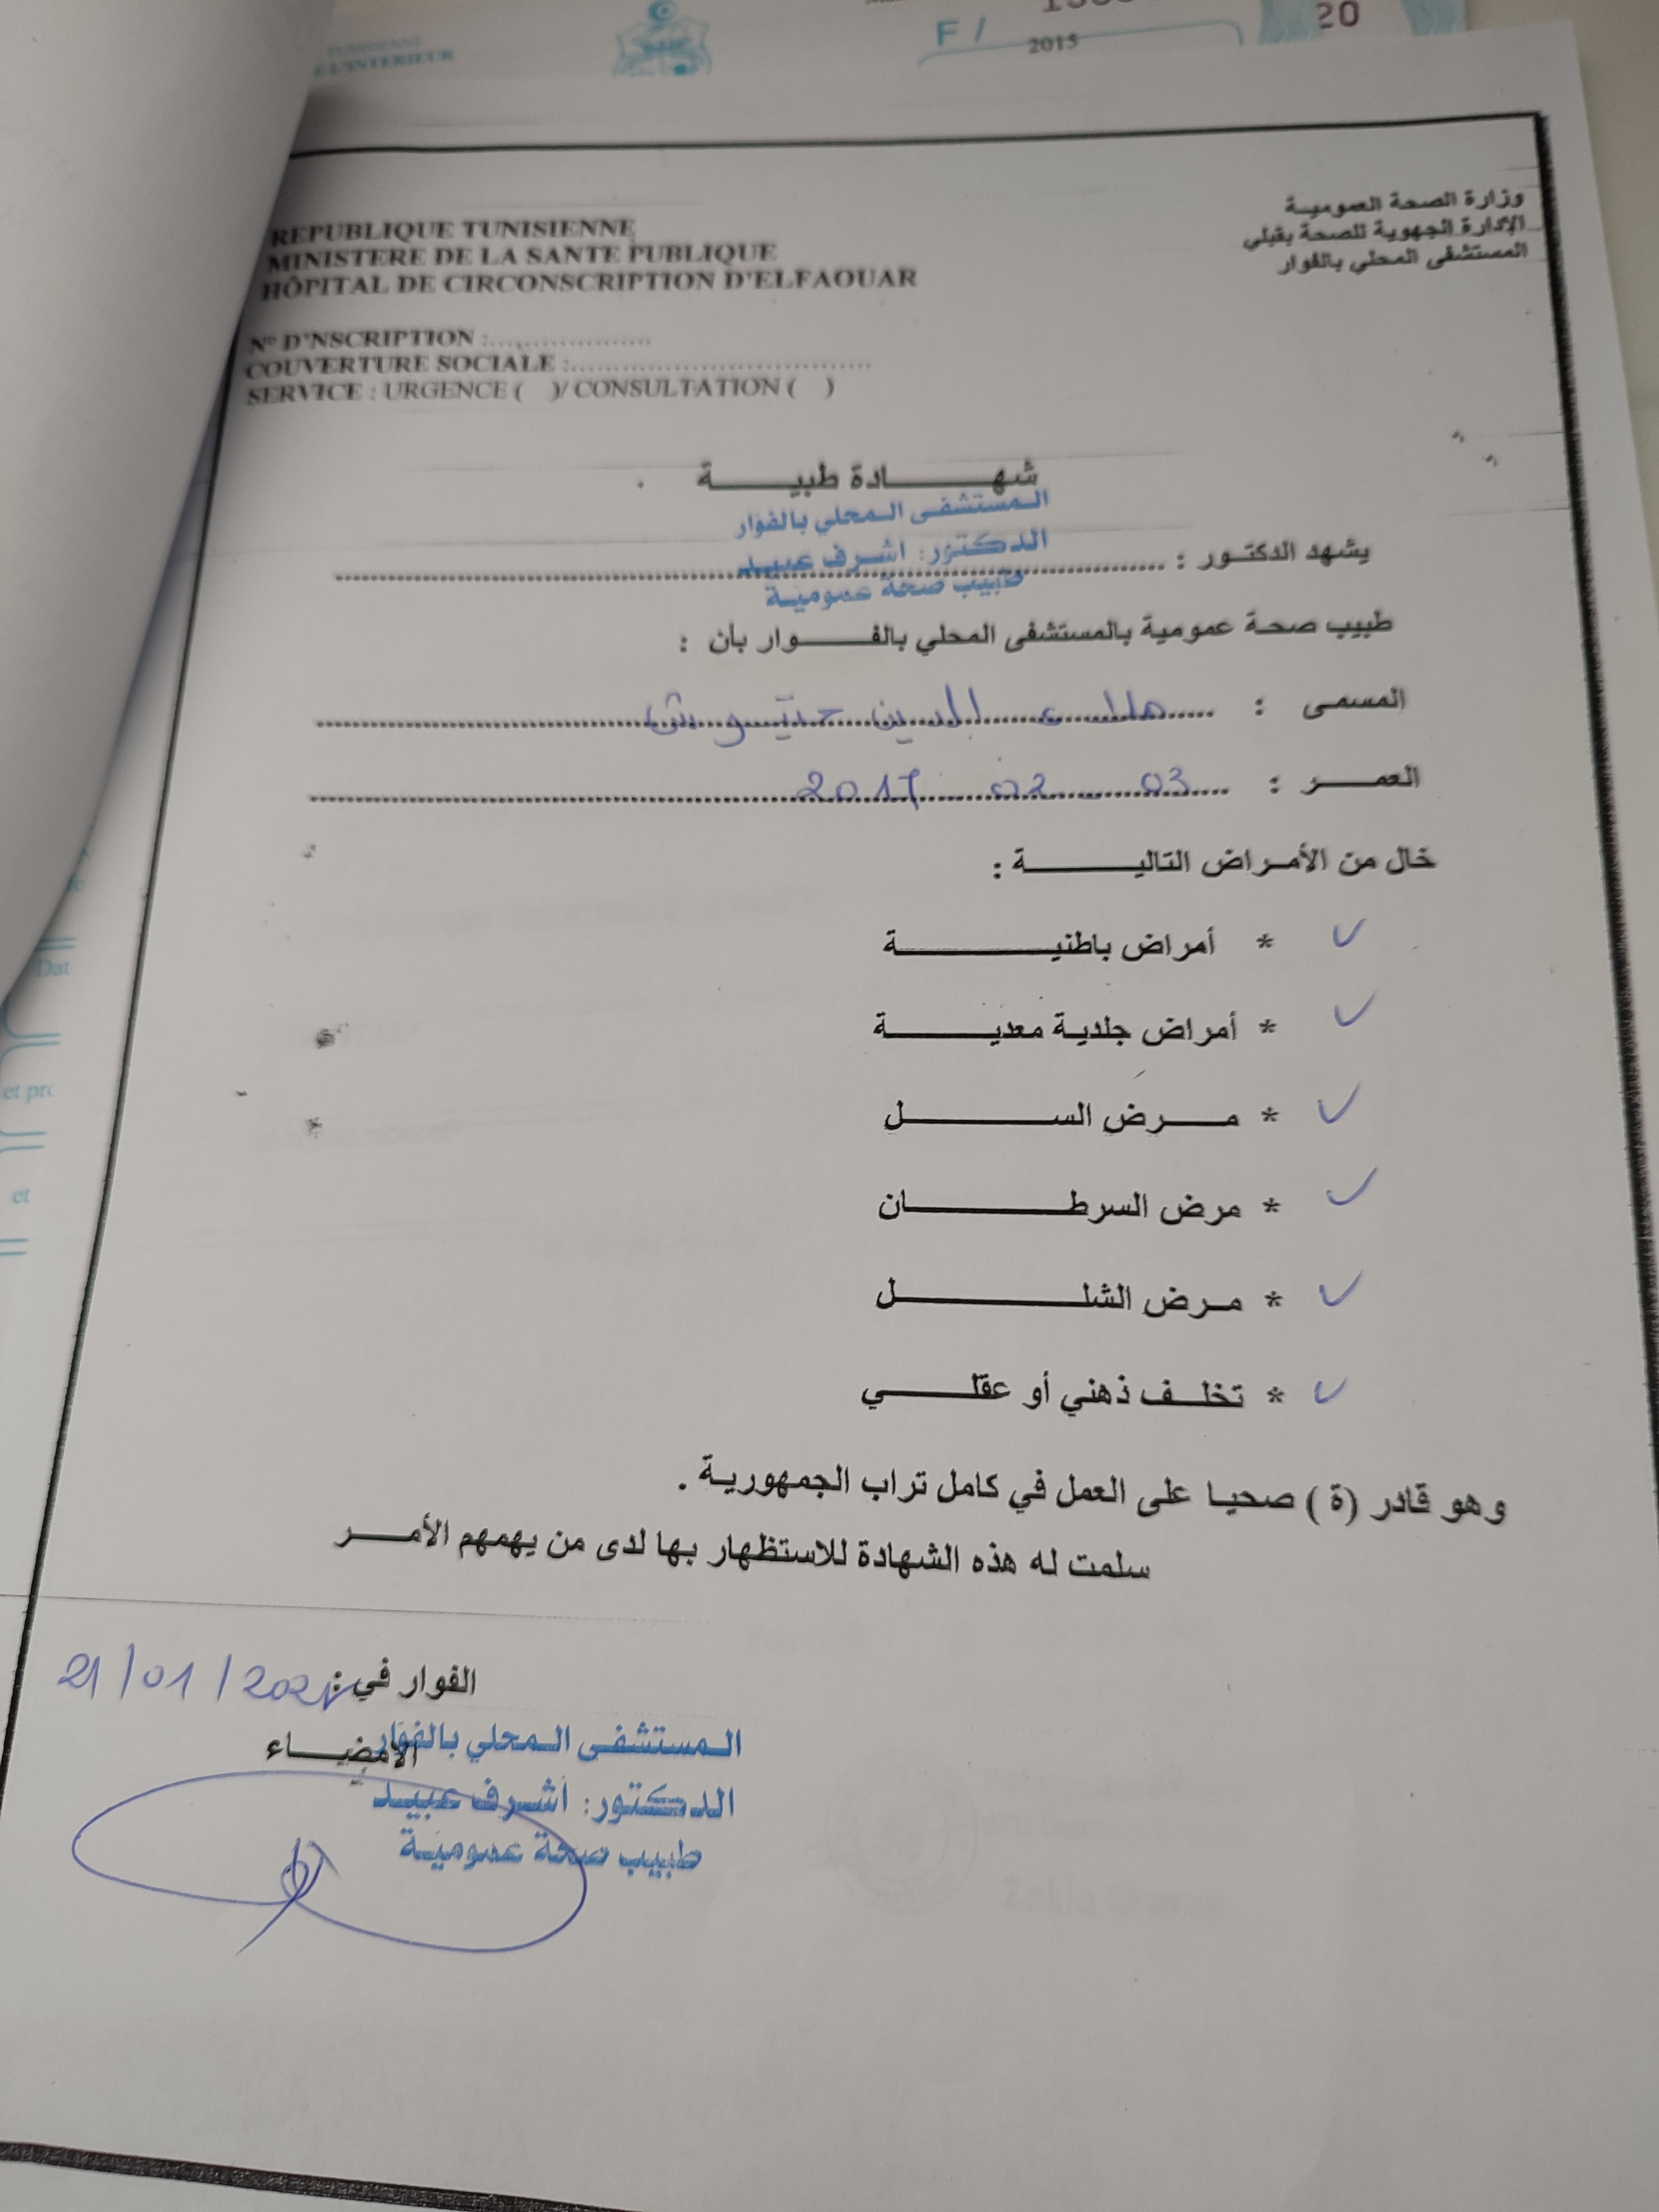 TUNISIENNE
E L'INTERIEUR
F /
2015
20
REPUBLIQUE TUNISIENNE
MINISTERE DE LA SANTE PUBLIQUE
HÔPITAL DE CIRCONSCRIPTION D'ELFAOUAR
وزارة الصحة العمومية
الإدارة الجهوية للصحة بقبلي
المستشفى المحلي بالفوار
N° D'NSCRIPTION :....................
COUVERTURE SOCIALE :....................................
SERVICE : URGENCE (   )/ CONSULTATION (   )
شهـــــادة طبيـــــة
المستشفى المحلي بالفوار
الدكتور: اشرف عبيد
طبيب صحة عمومية
يشهد الدكتـور :
طبيب صحة عمومية بالمستشفى المحلي بالفـــــوار بأن :
المسمى : الدين
العمـــر : 03 02 2017
خال من الأمراض التاليـــــة :
* أمراض باطنيـــــة
* أمراض جلدية معديـــــة
* مـــرض الســـــل
* مرض السرطـــــان
* مـرض الشلـــــل
* تخلـف ذهني أو عقلـــــي
وهو قادر (ة ) صحيـا على العمل في كامل تراب الجمهوريـة .
سلمت له هذه الشهادة للاستظهار بها لدى من يهمهم الأمـــر
الفوار في : 21/01/
الامضيـــاء
المستشفى المحلي بالفوار
الدكتور: اشرف عبيد
طبيب صحة عمومية
Dat
et pro
et